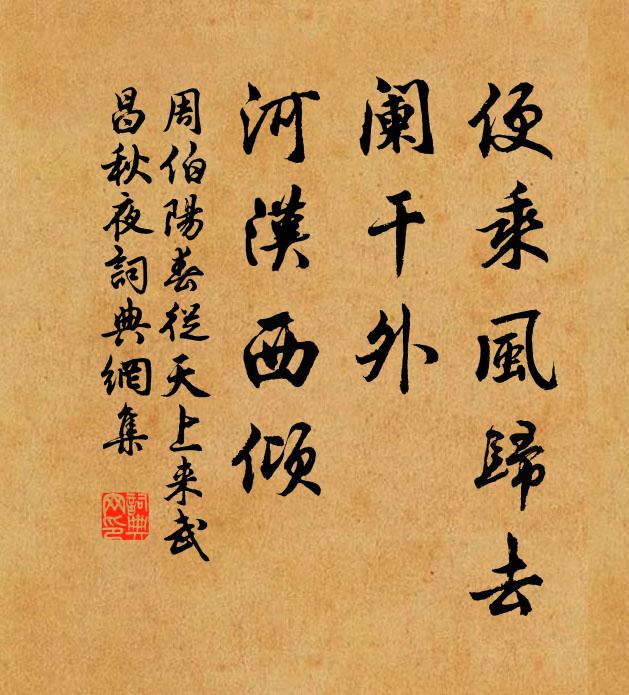 便乘風歸去
阑干外
河漢西傾
周伯陽春從天上来武
昌秋夜詞典網集
詞典
网印